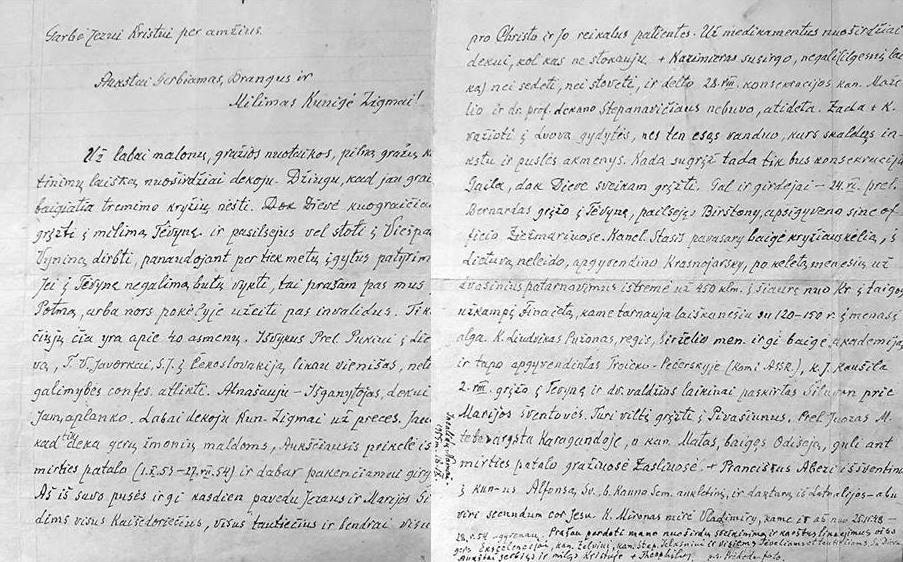 Garbė Jezui Kristui per amžius.
Aukštai Gerbiamas, Brangus ir
Milimas Kunigė Zigmai!
Už labai malonų, gražios nuotaikos, pilną gražių
tinimų laišką nuoširdžiai dekoju. Džiugu, kad jau
baigiatia tremimo kryžių nešti. Dok Dievė kuograičiau
grįžti į milimą Tėvynę ir pasilsėjus vel stoti į Viešpa
Vyninę dirbti, panaudojant per tiek metų įgytus patyrim
Jei į Tėvynę negalima butų vykti, tai prašam pas mus
Potma, urba nors pakelyje užeiti pas invalidus. Ti
čiųjų čia yra apie 40 asmenų. Išvykus Prel. Pukini į Lie
va, T. V. Javorkai, S.J. į Čekoslovakiją, likau vienišas, net
galimybės confes. atlikti. Atnašauju - Išganytojas, dekui
Jam, aplanko. Labai dekoju Kun. Zigmai už preces.
kad deka gerų žmonių maldoms, Aukščiausis prikelė iš
mirties patalo (1.X.53–27.VII.54) ir dabar pakenčiamai
Aš iš savo pusės irgi kasdien pavedu Jezaus ir Marijos Ši
dims visus Kaišedoriečius, visus tautiečius ir bendrai visu
pro Christo ir Jo reikalus patientes. Už medikamentus nuoširdžiai
dekui, kol kas ne stokauju. + Kazimieras susirgo, negali (ilgesnį lai-
ką) nei sedeti, nei stoveti, ir delto 28.VIII. konsekracijos kan. Maže-
lio ir dr. prof. dekano Stepanavičiaus nebuvo, atidėta. Žada + K.
važioti į dvovą gydytės, nes ten esąs vanduo, kurs skaldąs in-
kstu ir puslės akmenys. Kada sugrįž tada tik bus konsekracija.
Gaila, dok Dieve sveikam grįžti. Gal ir girdejai – 24.VI. prel.
Bernardas grįžo į Tėvynę, pailsejęs Birštonę, apsigyveno sine of-
ficio Žiežmariuose. Kanel. Stasis pavasarį baigė kryžiaus kelią, į
Lietuvą neleido, apgyvendino Krasnojarsky, po keletą menesių už
dvasinius patarnavimus ištremė už 450 klm. į šiaurę nuo Kr. į taigos
užkampį, kame tarnauja laiškunešiu su 120–150 r. į menasį
alga. K. Liudvikas Pužonas, regis, birželio men. irgi baigė akademiją
ir tapo apgyvendintas Troicko-Pečerskyje (Komi ASSR.), k. J.
2.VIII. grįžo į Tėvynę ir dv. valdžios laikinai paskirtas Šiluvon prie
Marijos šventovės. Turi viltį grįžti į Pivašiunus. Prel. Juozas M.
tebevargsta Karagandoje, o kan. Matas, baigęs Odisėją, guli ant
mirties patalo gražiuosė Zasliuosė. + Pranciškus Abezi išsventino
į kun-us Alfonsą Sv., b. Kauno Sem. auklėtinį, ir daktarą iš Latvijos – abu
viri secundum cor Jesu. K. Mironas mirė Vladimiry, kame ir aš nuo
gyvenau. Prašau perdoti mano nuoširdų sveikinimą ir
kan. Želvini, kan. Step. ir visiems Tėveliams ir tautiečiams. Su Dievu
Kristuje + Theophilus